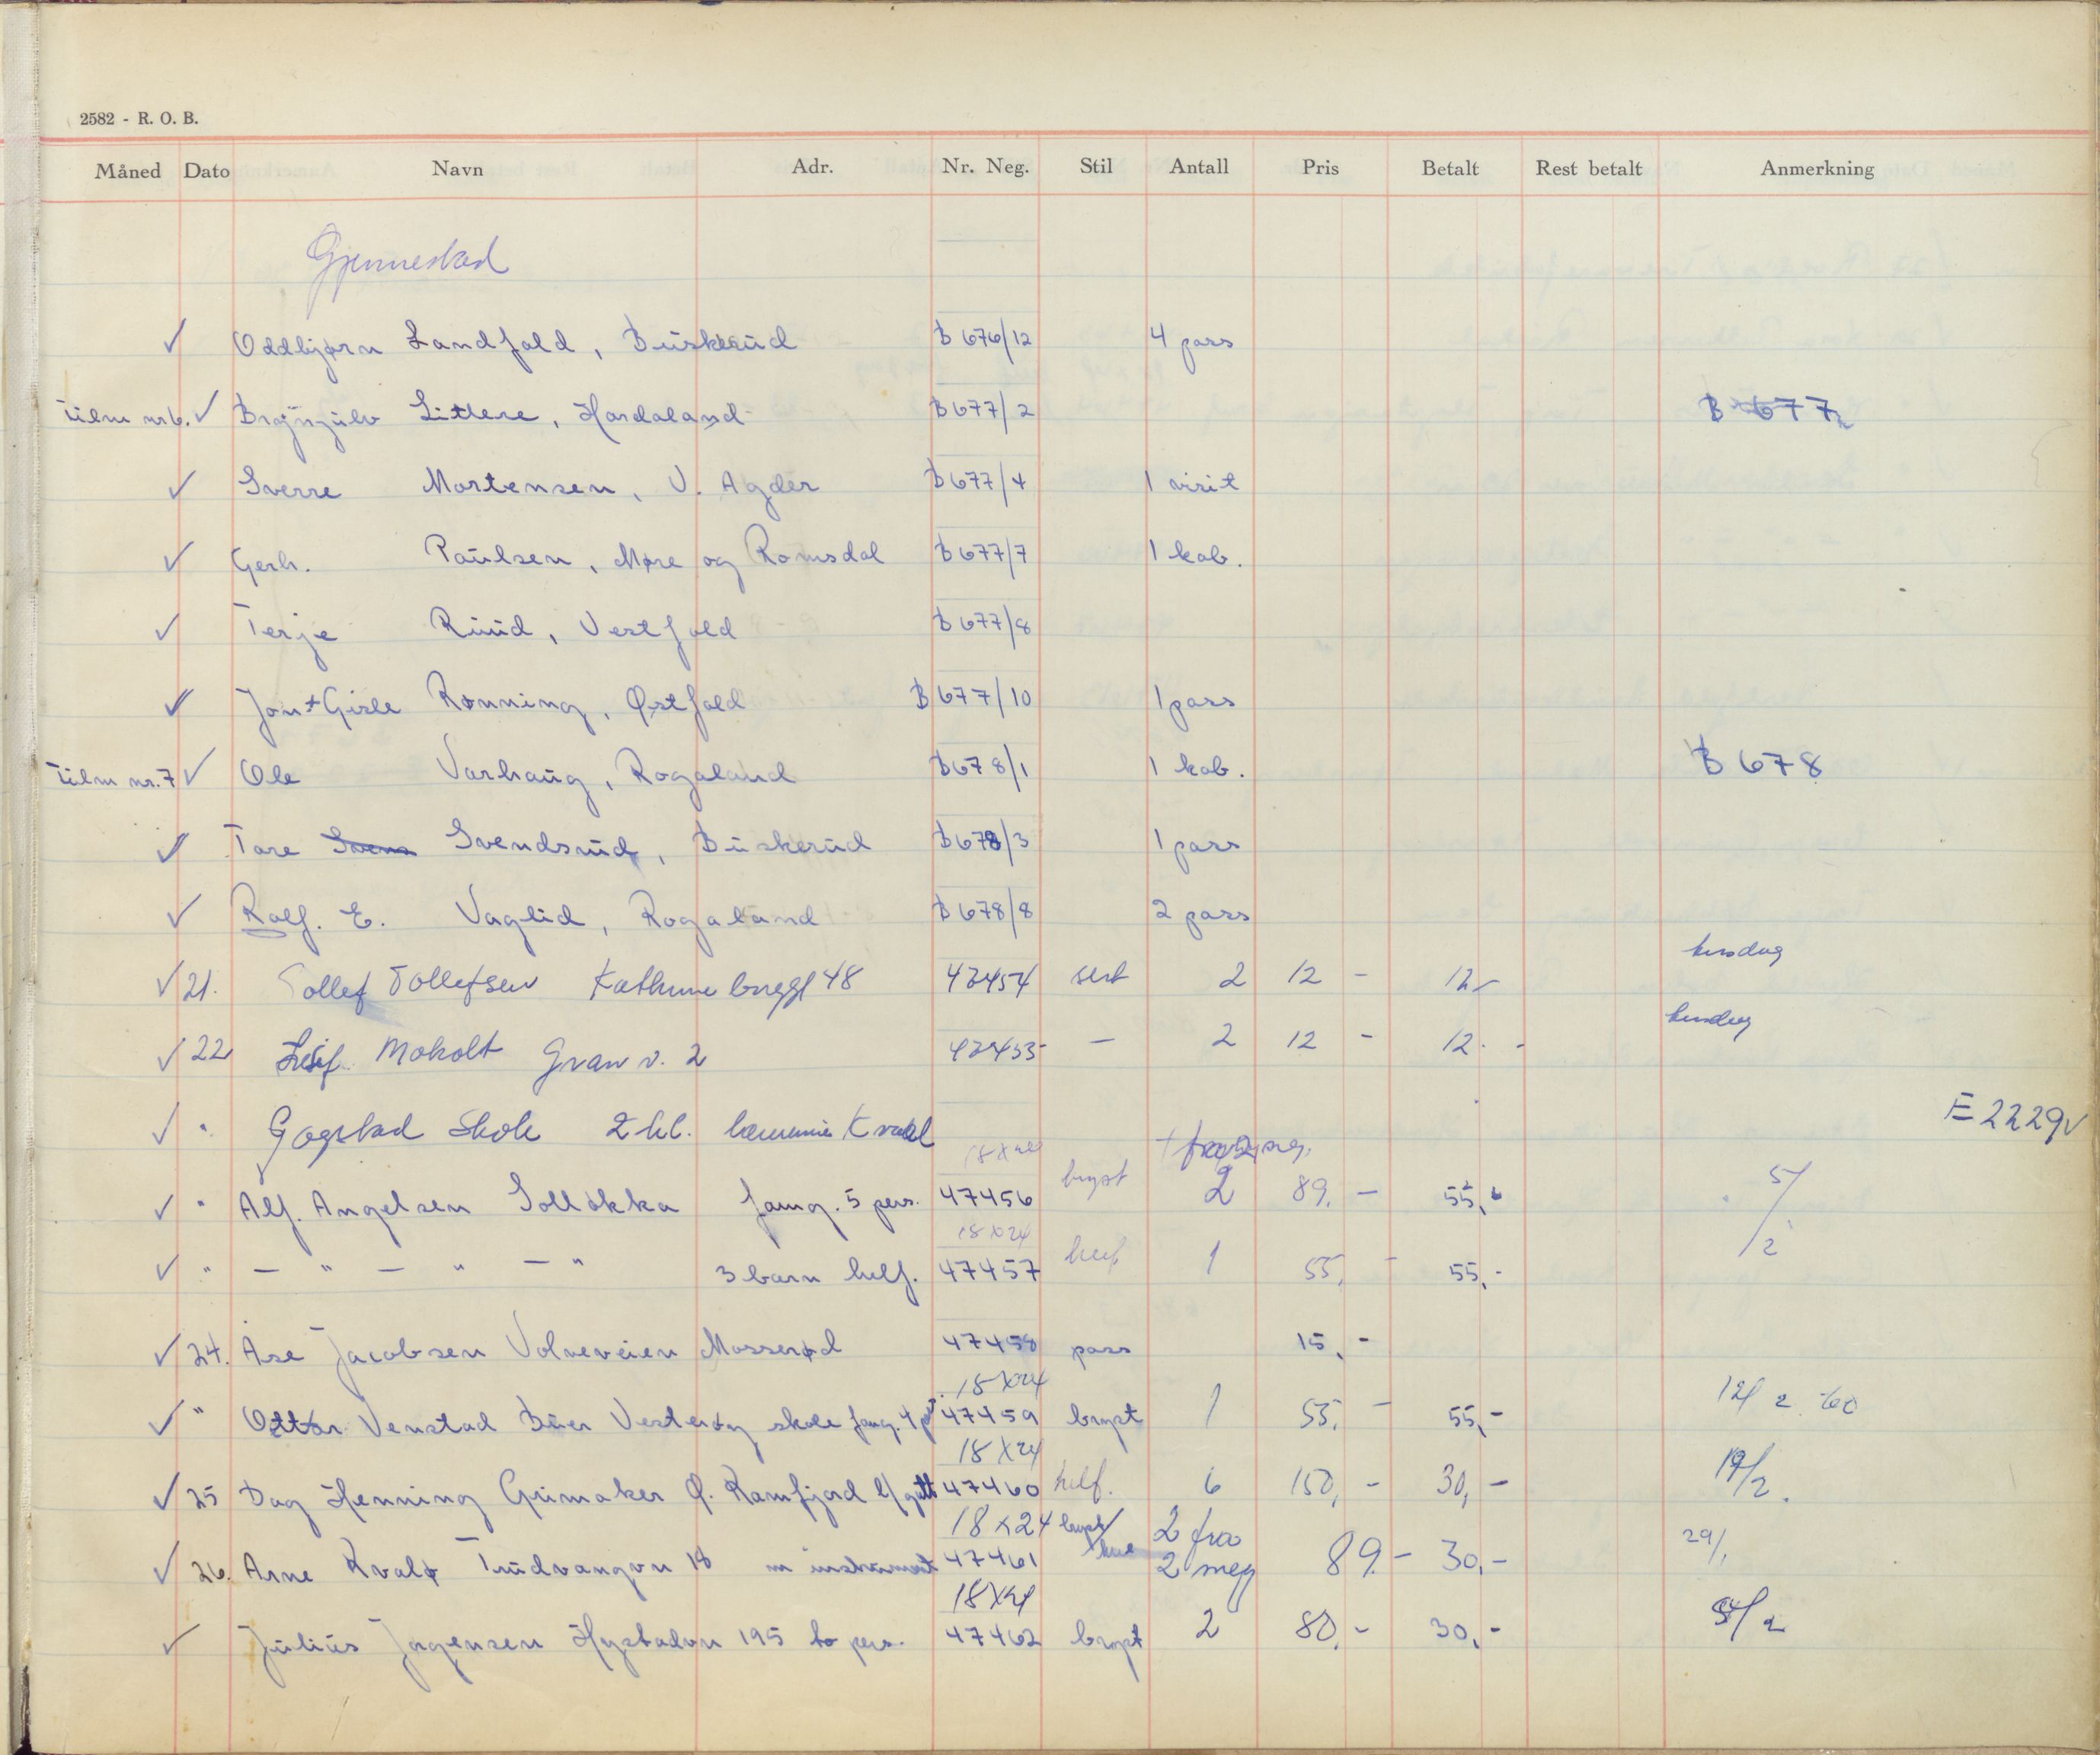 2582 - R. O. B.
Måned Dato Navn Adr. Nr. Neg. Stil Antall Pris Betalt Rest betalt Anmerkning
Gjennestad
✓ Oddbjørn Landfald, Buskerud B 676/12 4 pass
Film nr 6. ✓ Brynjulv Littlere, Hordaland B 677/2 B 677
✓ Sverre Mortensen, V. Agder B 677/4 1 visit
✓ Gerh. Paulsen, Møre og Romsdal B 677/7 1 kab.
✓ Terje Ruud, Vestfold B 677/8
✓ Jon + Gisle Rønning, Østfold B 677/10 1 pass
Film nr. 7 ✓ Ole Varhaug, Rogaland B 678/1 1 kab. B 678
✓ Tore Svendsrud, Buskerud B 678/3 1 pass
✓ Rolf. E. Vaglid, Rogaland B 678/8 2 pass
✓ 21. Tollef Tollefsen 48 47454 sert 2 12 - 12,-
✓ 22 Leif Moholt Gran v. 2 47455 — 2 12 - 12. -
✓ " Gogstad Skole 2 kl. E 2229 ✓
18 x 24
✓ " Alf. Angelsen Solløkka famg. 5 pers. 47456 bryst 2 89. - 55,- 5/2
18 x 24
✓ " — " — " — " 3 barn helf. 47457 helf 1 55, - 55,-
✓ 24. Åse Jacobsen Volveveien Mosserød 47458 pass 15,-
18 x 24
✓ " Ottar Venstad Buer Vesterøy skole famg. 4 pers 47459 bryst 1 55. - 55,- 12/2 60
18 x 24
✓ 25 Dag Henning Grimaker Ø. Ramfjord l/gutt 47460 helf. 6 150, - 30,- 19/2.
18 x 24 bryst/ 2 fra
✓ 26. Arne Kvalø Trudvangvn 18 m instrument 47461 kne 2 neg 89.- 30,- 29/1
18 x 24
✓ Julius Jørgensen Hystadvn 195 to pers. 47462 bryst 2 80.- 30,- 5/2